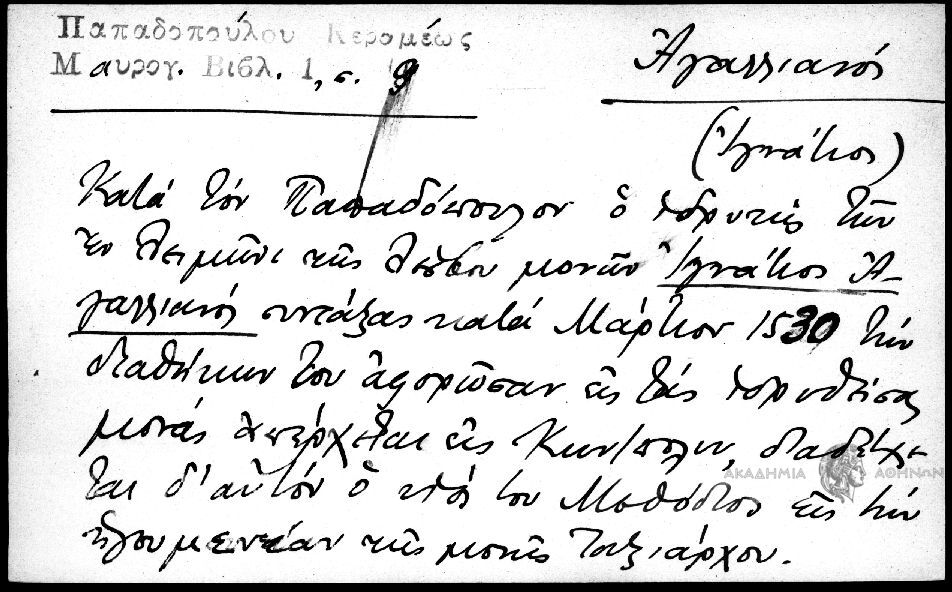 Παπαδοπούλου Κεραμέως
Μαυρογ. Βιβλ. 1, σ. 9
Ἀγαλλιανός
(Ἰγνάτιος)
Κατά τόν Παπαδόπουλον ὁ ἱδρυτής τῶν
ἐν Λειμῶνι τῆς Λέσβου μονῶν Ἰγνάτιος Ἀ-
γαλλιανός συντάξας κατά Μάρτιον 1530 τήν
διαθήκην του ἀφορῶσαν εἰς τάς ἱδρυθείσας
μονάς ἀπέρχεται εἰς Κων/πολιν, διαδέχε-
ται δ' αὐτόν ὁ υἱός του Μεθόδιος εἰς τήν
ἡγουμενείαν τῆς μονῆς Ταξιάρχου.
ΑΚΑΔΗΜΙΑ ΑΘΗΝΩΝ